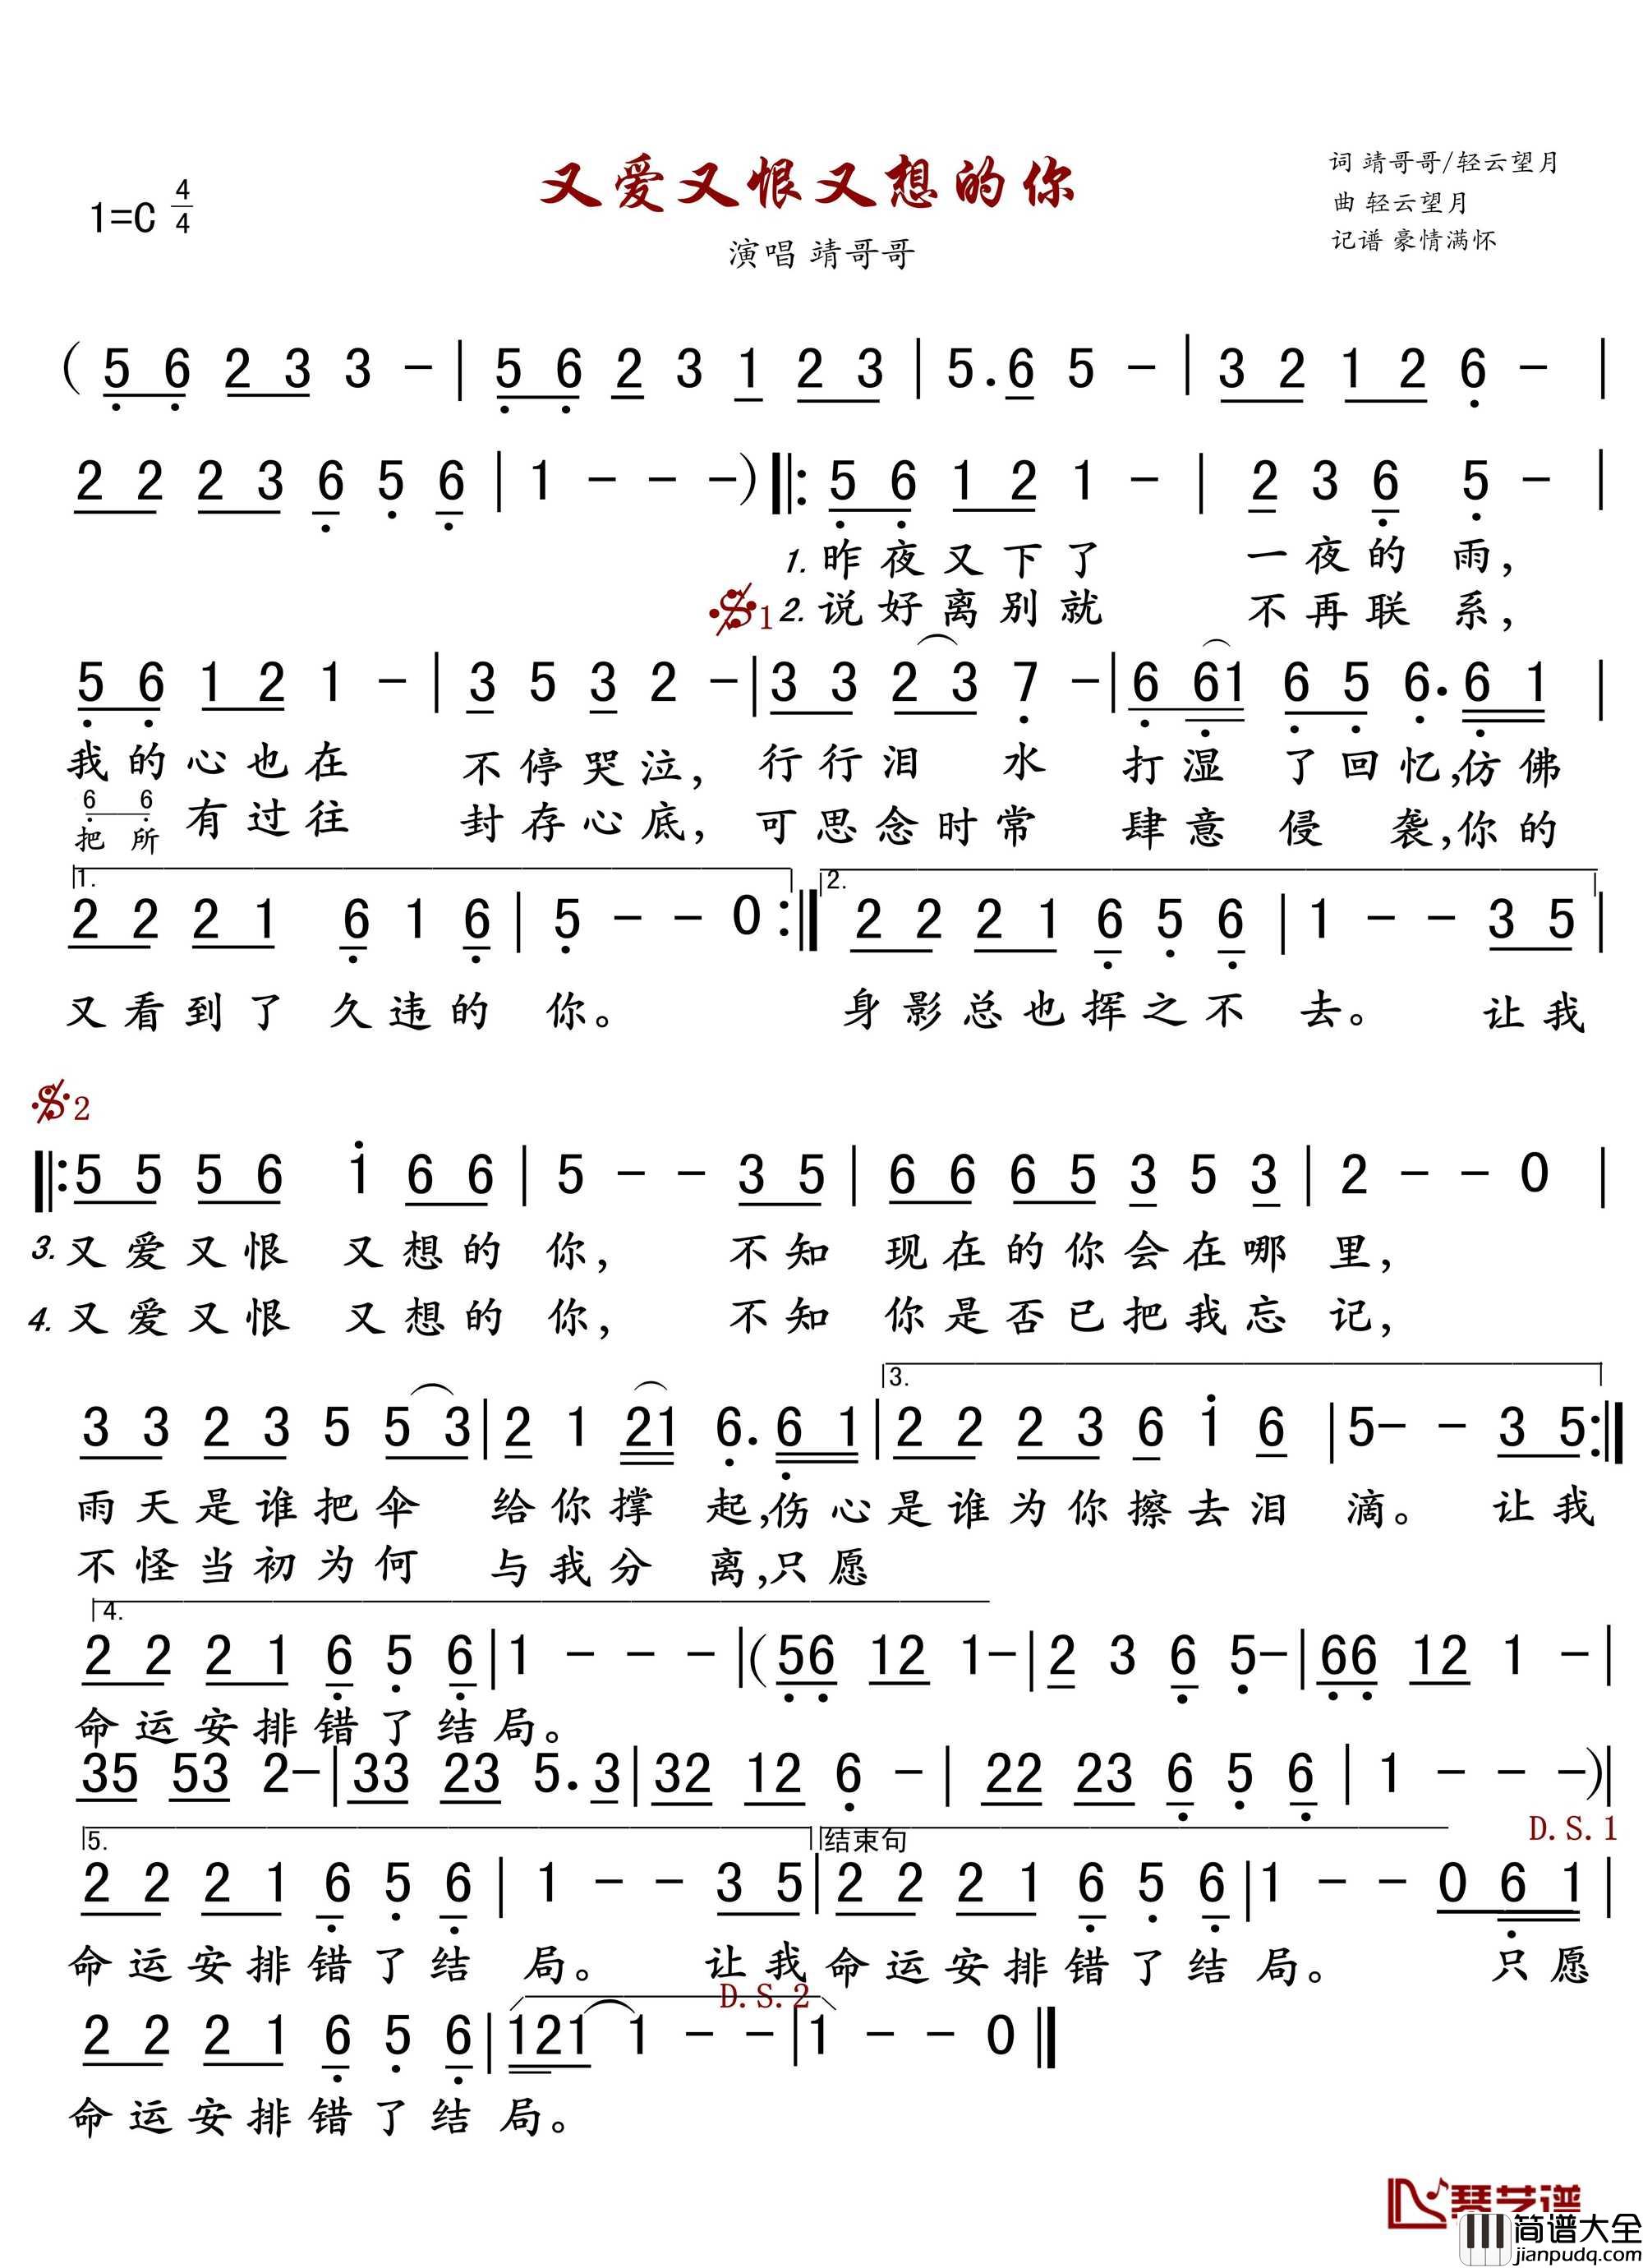 又爱又恨又想的你
词 靖哥哥/轻云望月
1=C 4/4
曲 轻云望月
演唱 靖哥哥
记谱 豪情满怀
( 5 6 2 3 3 - | 5 6 2 3 1 2 3 | 5. 6 5 - | 3 2 1 2 6 - |
2 2 2 3 6 5 6 | 1 - - - ) ‖: 5 6 1 2 1 - | 2 3 6 5 - |
1. 昨夜又下了 一夜的 雨,
1 2. 说好离别就 不再联 系,
5 6 1 2 1 - | 3 5 3 2 - | 3 3 2 3 7 - | 6 61 6 5 6. 6 1 |
我的心也在 不停哭泣, 行行泪 水 打湿 了回忆,仿佛
6 6
把所 有过往 封存心底, 可思念时常 肆意 侵 袭,你的
1. 2.
2 2 2 1 6 1 6 | 5 - - 0 :‖ 2 2 2 1 6 5 6 | 1 - - 3 5 |
又看到了 久违的 你。 身影总也挥之不 去。 让我
2
‖: 5 5 5 6 1 6 6 | 5 - - 3 5 | 6 6 6 5 3 5 3 | 2 - - 0 |
3. 又爱又恨 又想的 你, 不知 现在的你会在哪 里,
4. 又爱又恨 又想的 你, 不知 你是否已把我忘 记,
3.
3 3 2 3 5 5 3 | 2 1 21 6. 6 1 | 2 2 2 3 6 1 6 | 5 - - 3 5 :‖
雨天是谁把伞 给你撑 起,伤心是谁为你擦去泪 滴。 让我
不怪当初为何 与我分 离,只愿
4.
2 2 2 1 6 5 6 | 1 - - - | ( 56 12 1 - | 2 3 6 5 - | 66 12 1 - |
命运安排错了结局。
35 53 2 - | 33 23 5. 3 | 32 12 6 - | 22 23 6 5 6 | 1 - - - ) |
D.S.1
5. 结束句
2 2 2 1 6 5 6 | 1 - - 3 5 | 2 2 2 1 6 5 6 | 1 - - 0 6 1 |
命运安排错了结 局。 让我命运安排错了结 局。 只愿
D.S.2
2 2 2 1 6 5 6 | 121 1 - - | 1 - - 0 ‖
命运安排错了结 局。
琴艺谱
简谱大全
jianpudq.com